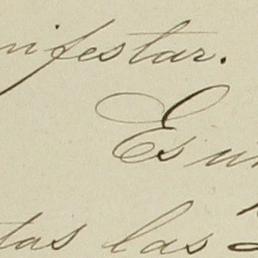 nifestar.
Es un
tas las